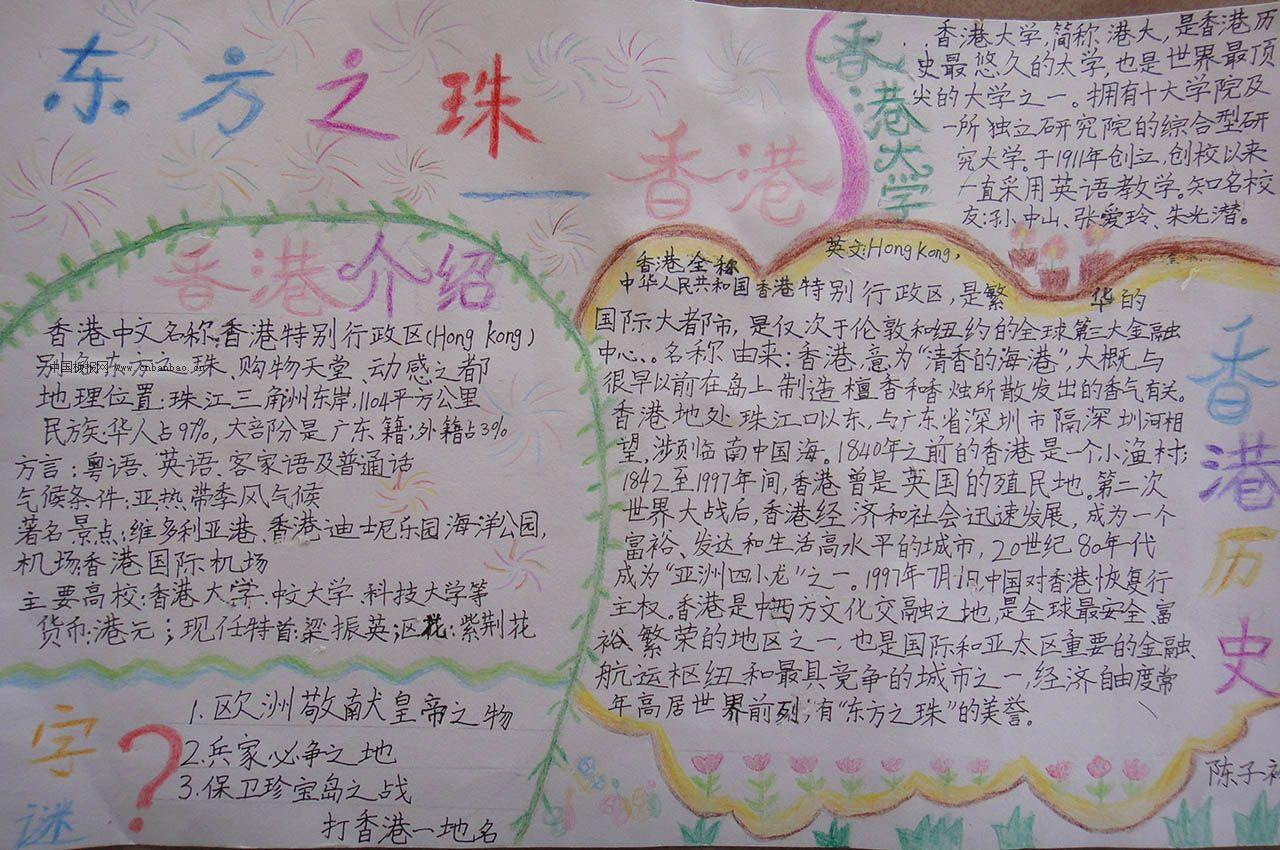 东方之珠
——香港
香港介绍
香港中文名称:香港特别行政区(Hong Kong)
别名:东方之珠、购物天堂、动感之都
中国板报网 www.cnbanbao.cn
地理位置:珠江三角洲东岸,1104平方公里
民族:华人占97%,大部分是广东籍;外籍占3%
方言:粤语、英语、客家语及普通话
气候条件:亚热带季风气候
著名景点:维多利亚港、香港迪士尼乐园、海洋公园,
机场:香港国际机场
主要高校:香港大学、中文大学、科技大学等
货币:港元;现任特首:梁振英;区花:紫荆花
字谜?
1.欧洲敬献皇帝之物
2.兵家必争之地
3.保卫珍宝岛之战
打香港一地名
香港大学
香港大学,简称港大,是香港历
史最悠久的大学,也是世界最顶
尖的大学之一。拥有十大学院及
一所独立研究院的综合型研
究大学。于1911年创立,创校以来
一直采用英语教学。知名校
友:孙中山、张爱玲、朱光潜。
香港历史
香港全称 英文:Hong Kong,
中华人民共和国香港特别行政区,是繁华的
国际大都市,是仅次于伦敦和纽约的全球第三大金融
中心。。名称由来:香港,意为“清香的海港”,大概与
很早以前在岛上制造檀香和香烛所散发出的香气有关。
香港地处珠江口以东,与广东省深圳市隔深圳河相
望,濒临南中国海。1840年之前的香港是一个小渔村;
1842至1997年间,香港曾是英国的殖民地。第二次
世界大战后,香港经济和社会迅速发展,成为一个
富裕、发达和生活高水平的城市,20世纪80年代
成为“亚洲四小龙”之一。1997年7月1日,中国对香港恢复行
主权。香港是中西方文化交融之地,是全球最安全、富
裕、繁荣的地区之一,也是国际和亚太区重要的金融、
航运枢纽和最具竞争的城市之一,经济自由度常
年高居世界前列,有“东方之珠”的美誉。
陈子